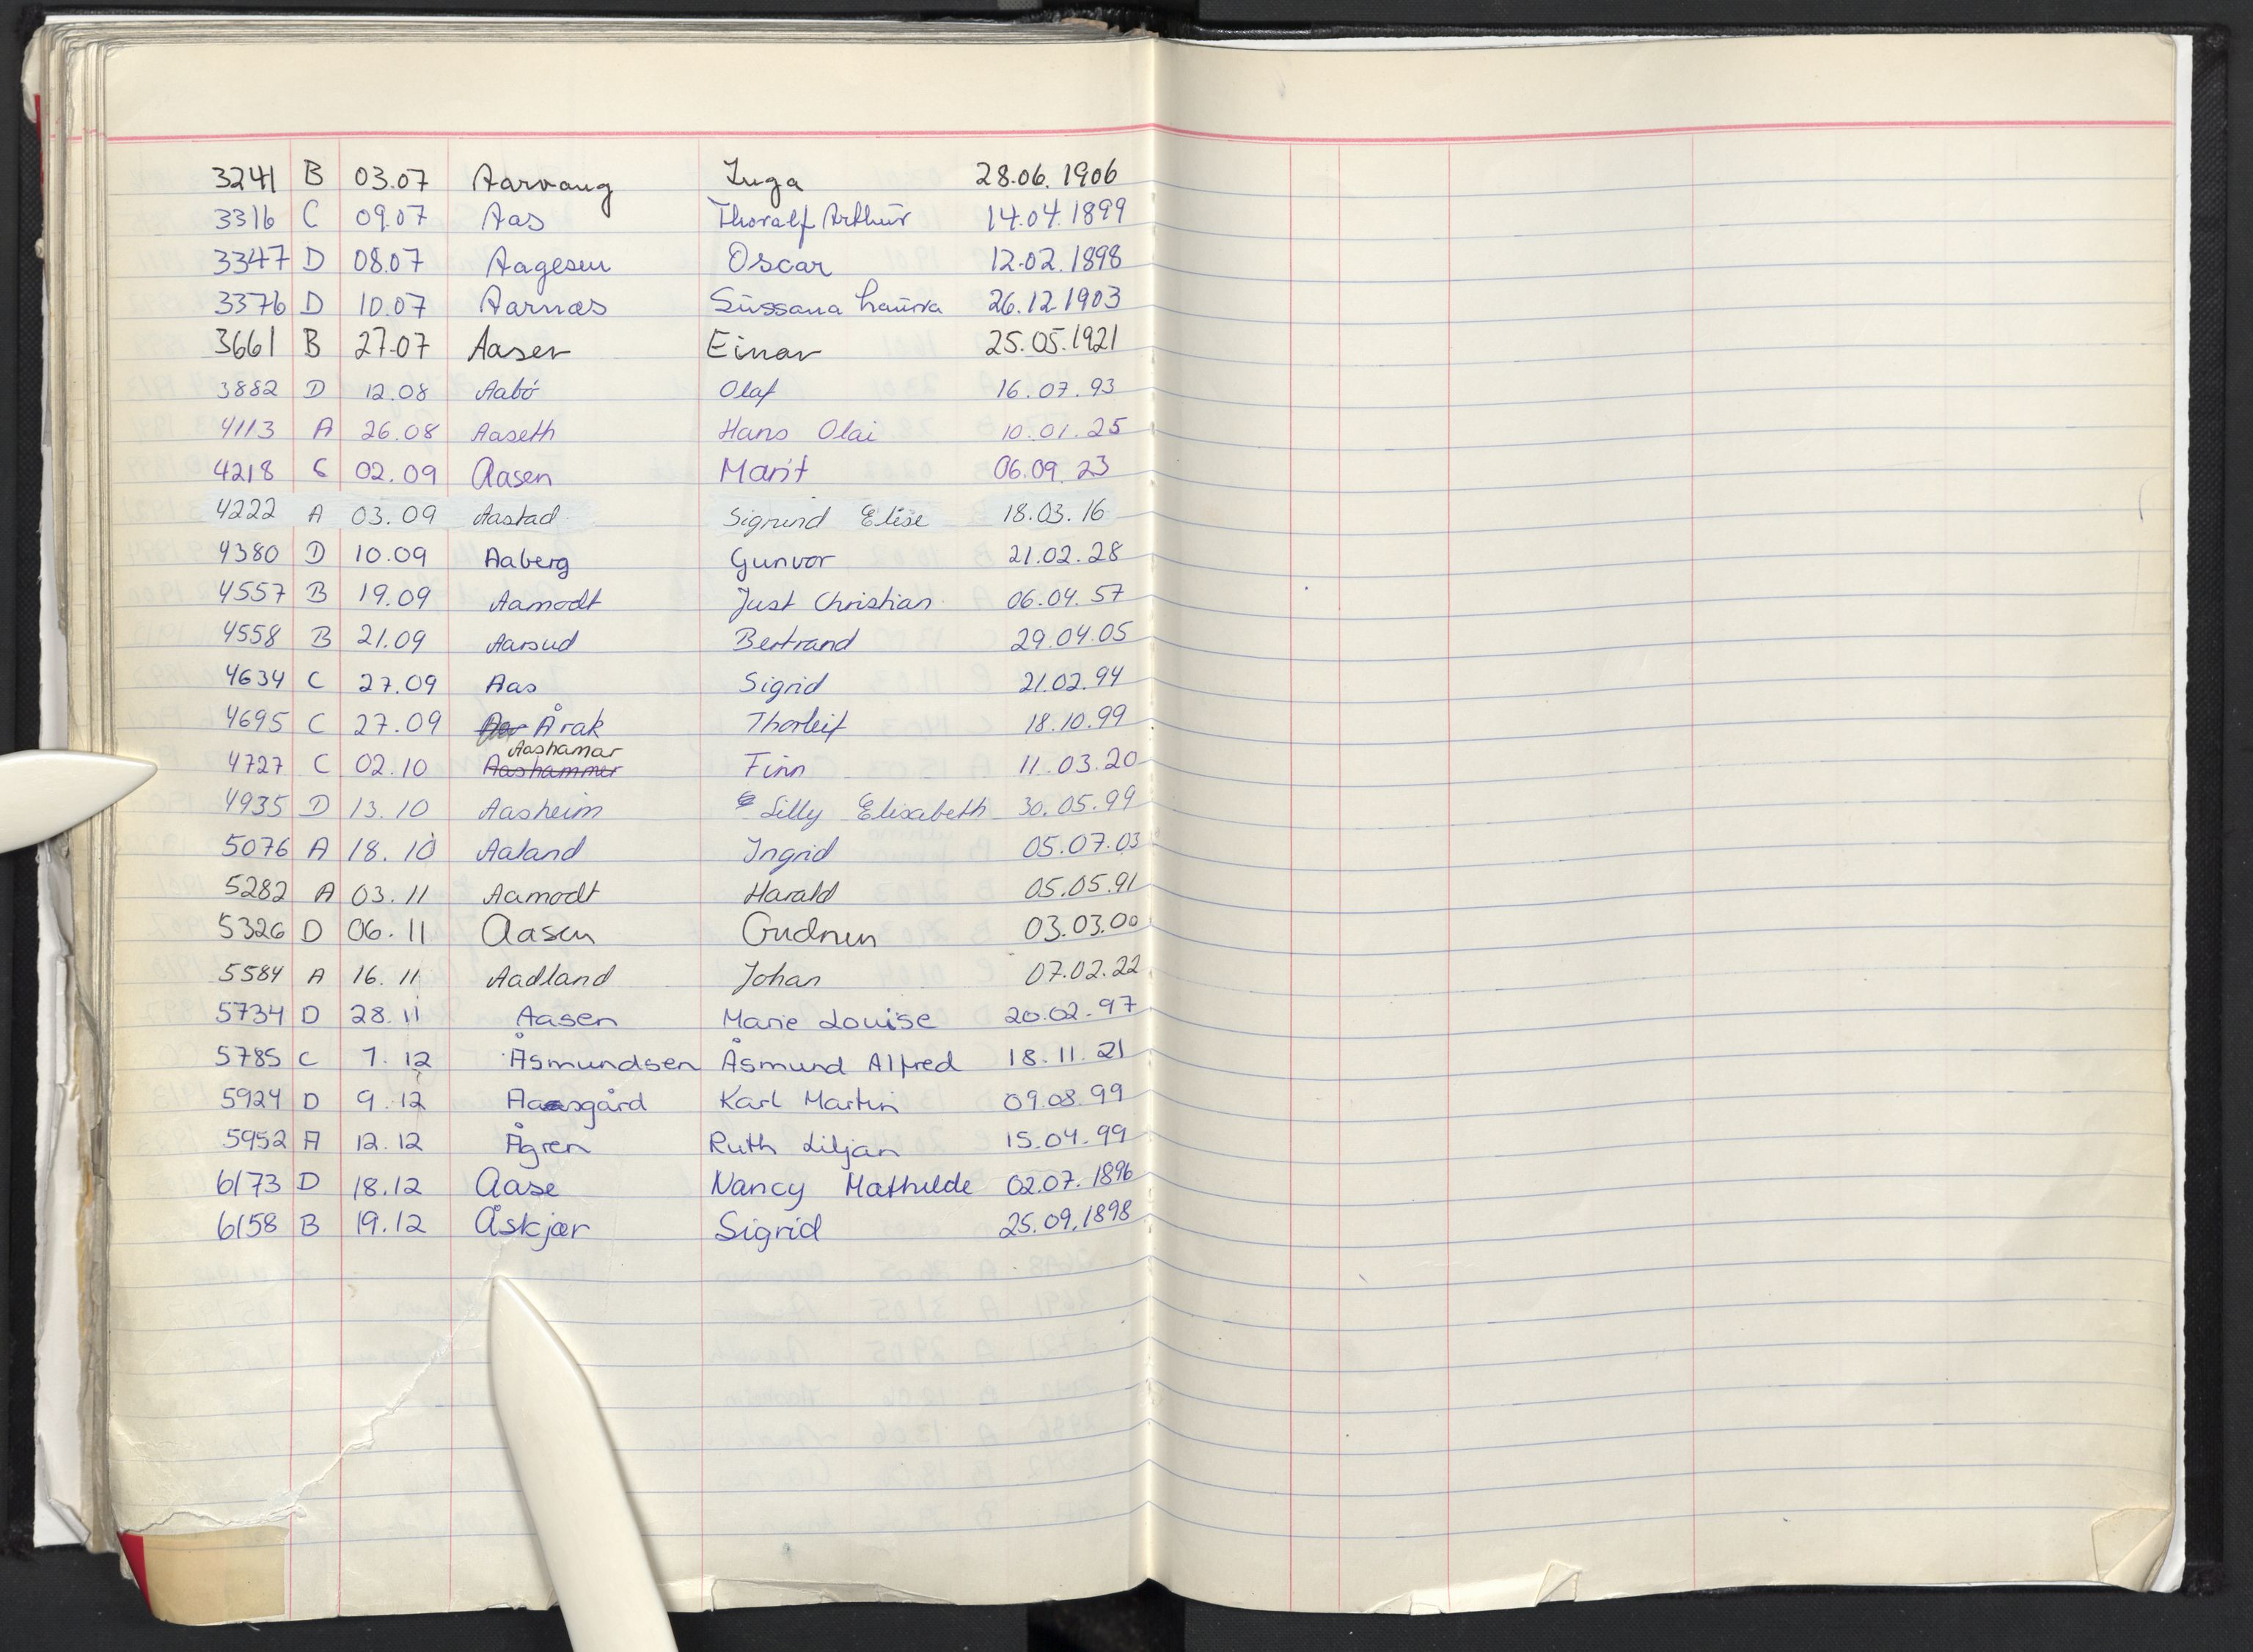 3241 B 03.07 Aarvang Inga 28.06.1906
3316 C 09.07 Aas Thoralf Arthur 14.04.1899
3347 D 08.07 Aagesen Oscar 12.02.1898
3376 D 10.07 Aarnæs Sussana Laura 26.12.1903
3661 B 27.07 Aaser Einar 25.05.1921
3882 D 12.08 Aabö Olaf 16.07.93
4113 A 26.08 Aaseth Hans Olai 10.01.25
4218 C 02.09 Aasen Marit 06.09.23
4222 A 03.09 Aastad Sigrund Elise 18.03.16
4380 D 10.09 Aaberg Gunvor 21.02.28
4557 B 19.09 Aamodt Just Christian 06.04.57
4558 B 21.09 Aarsud Bertrand 29.04.05
4634 C 27.09 Aas Sigrid 21.02.94
4695 C 27.09 Årak Thorleif 18.10.99
Aashamar
4727 C 02.10 Aashammer Finn 11.03.20
4935 D 13.10 Aasheim Lilly Elisabeth 30.05.99
5076 A 18.10 Aaland Ingrid 05.07.03
5282 A 03.11 Aamodt Harald 05.05.91
5326 D 06.11 Aasen Gudrun 03.03.00
5584 A 16.11 Aadland Johan 07.02.22
5734 D 28.11 Aasen Marie Louise 20.02.97
5785 C 7.12 Åsmundsen Åsmund Alfred 18.11.21
5924 D 9.12 Aasgård Karl Martin 09.08.99
5952 A 12.12 Ågren Ruth Liljan 15.04.99
6173 D 18.12 Aase Nancy Mathilde 02.07.1896
6158 B 19.12 Åskjær Sigrid 25.09.1898